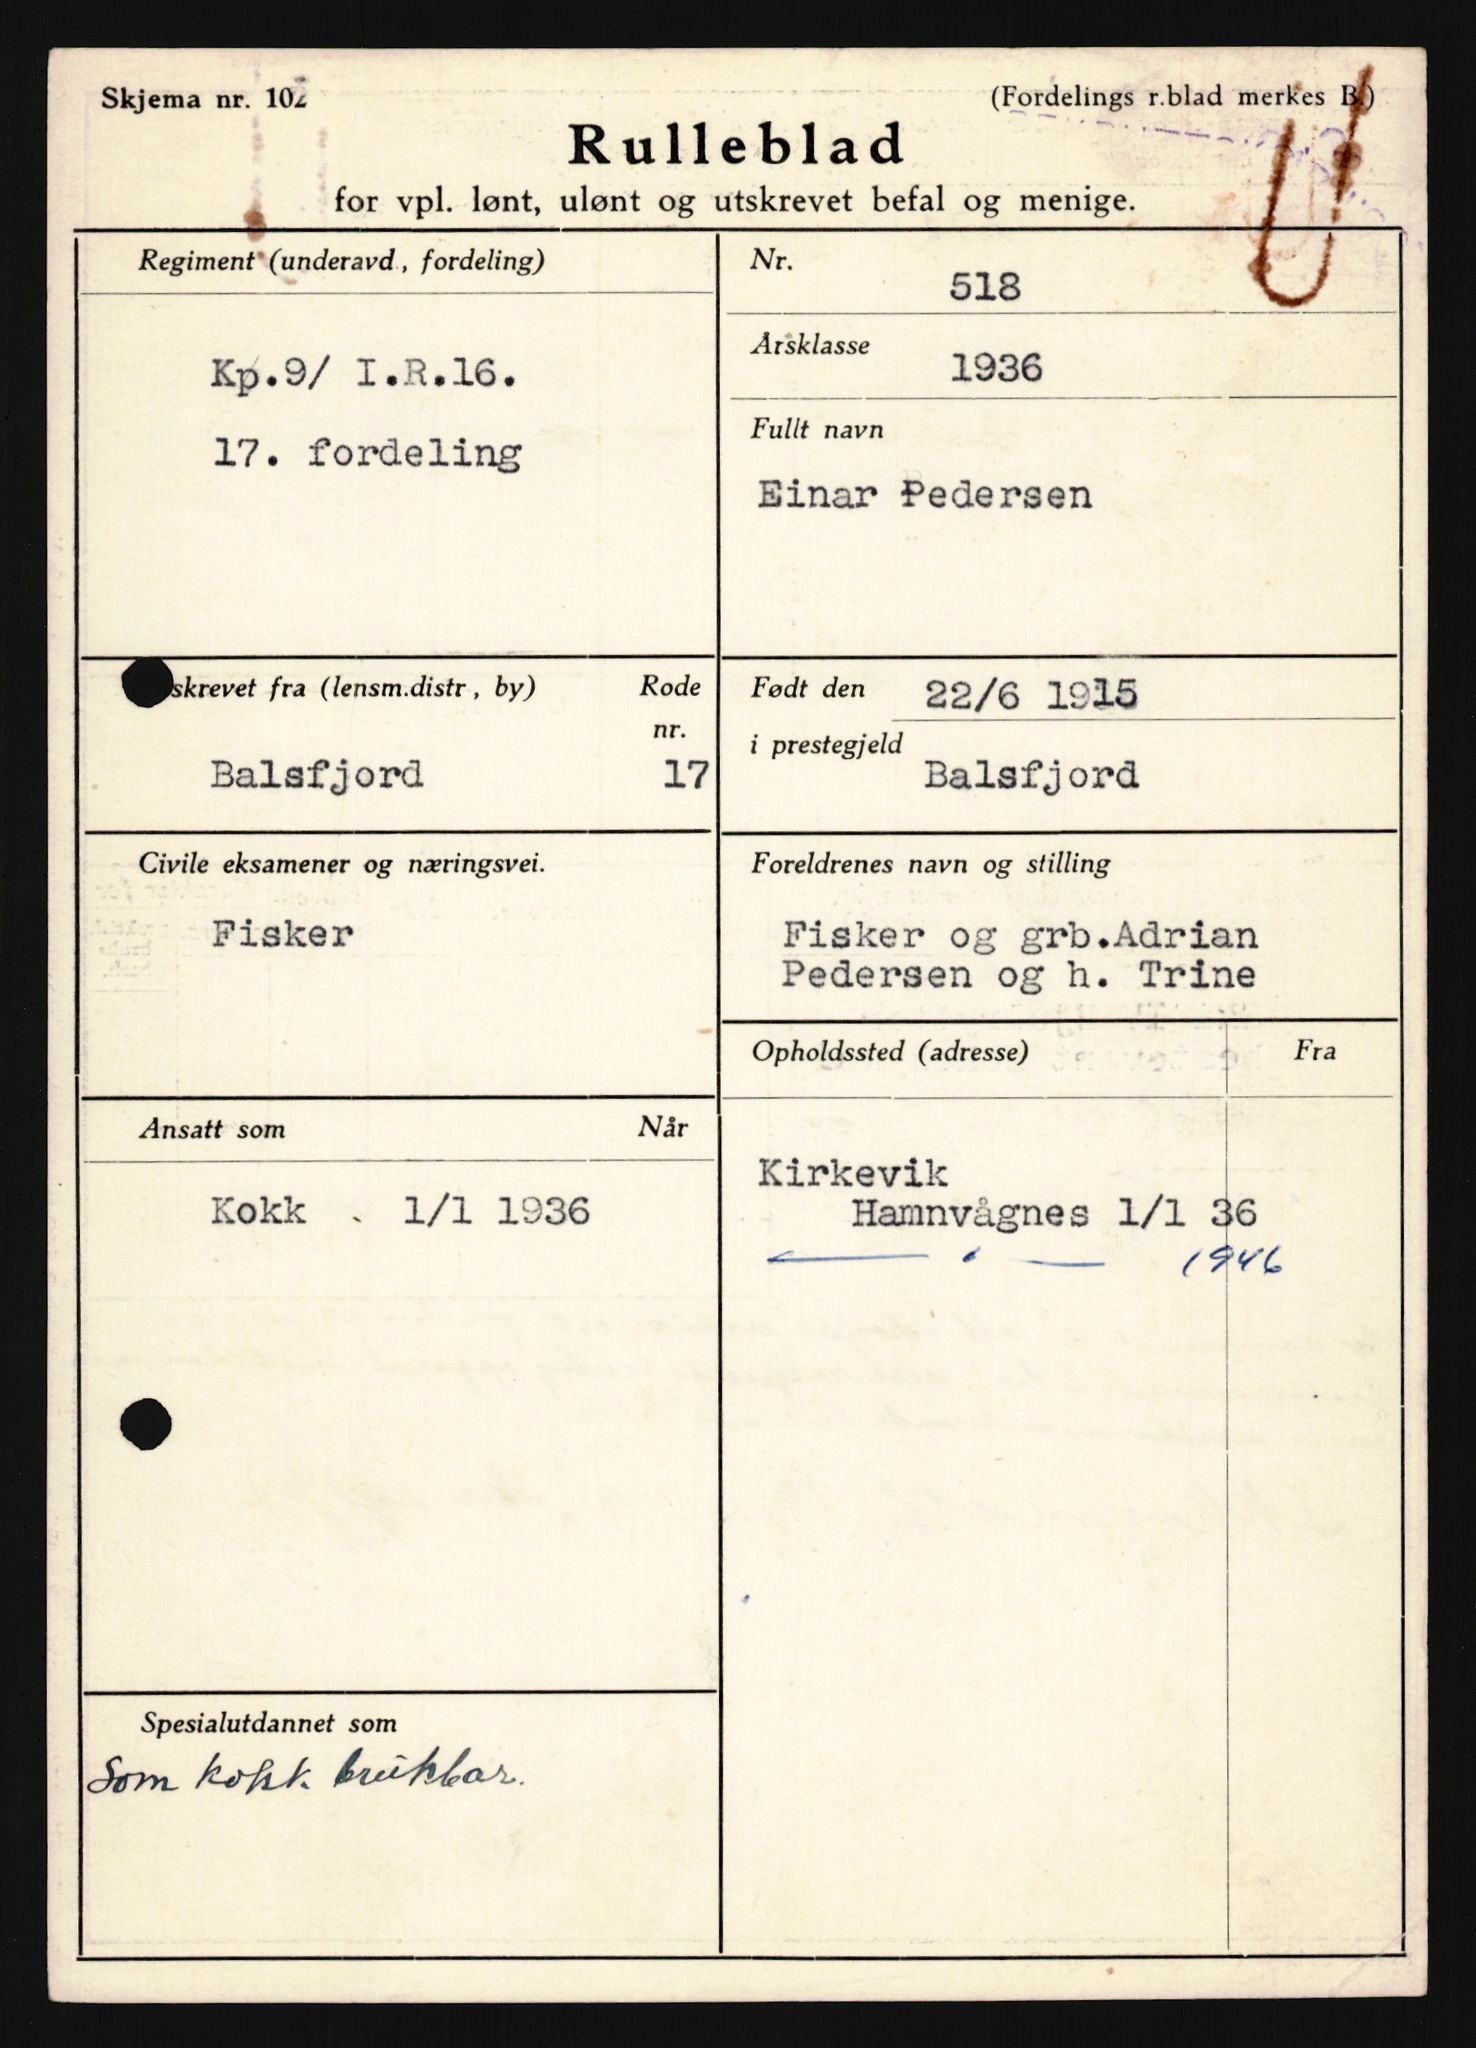 Skjema nr. 102
(Fordelings r.blad merkes B.)
Rulleblad
for vpl. lønt, ulønt og utskrevet befal og menige.
Regiment (underavd., fordeling)
Kp.9/ I.R.16.
17. fordeling
Nr.
518
Årsklasse
1936
Fullt navn
Einar Pedersen
skrevet fra (lensm.distr., by)
Rode
nr.
Balsfjord
17
Født den
22/6 1915
i prestegjeld
Balsfjord
Civile eksamener og næringsvei.
Fisker
Foreldrenes navn og stilling
Fisker og grb.Adrian
Pedersen og h. Trine
Opholdssted (adresse)
Fra
Kirkevik
Hamnvågnes 1/1 36
1946
Ansatt som
Når
Kokk 1/1 1936
Spesialutdannet som
Som kokk brukbar.